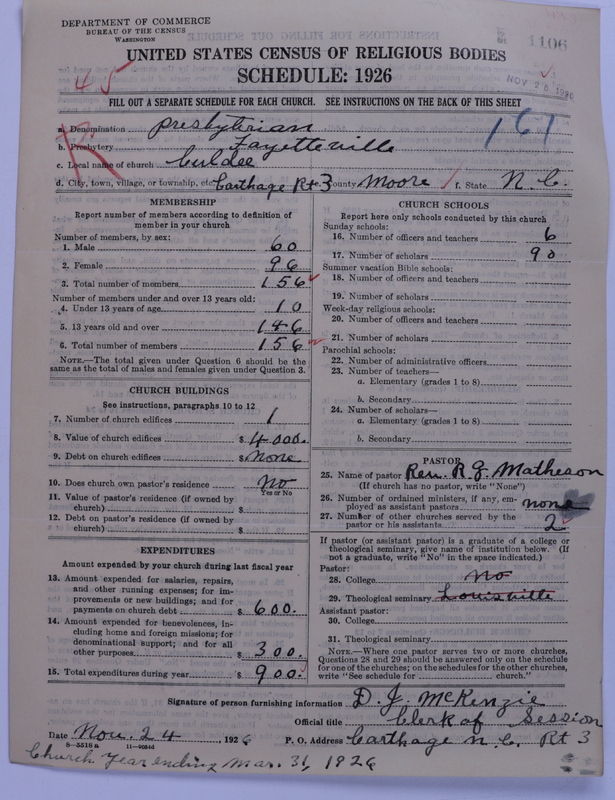 DEPARTMENT OF COMMERCE
BUREAU OF THE CENSUS
WASHINGTON
1106
NOV 26 1926
UNITED STATES CENSUS OF RELIGIOUS BODIES
SCHEDULE: 1926
45
FILL OUT A SEPARATE SCHEDULE FOR EACH CHURCH. SEE INSTRUCTIONS ON THE BACK OF THIS SHEET
R
161
a. Denomination Presbyterian
b. Presbytery Fayetteville
c. Local name of church Culdee
d. City, town, village, or township, etc. Carthage Rt 3 e. County Moore f. State N. C.
MEMBERSHIP
Report number of members according to definition of member in your church
Number of members, by sex:
1. Male 60
2. Female 96
3. Total number of members 156
Number of members under and over 13 years old:
4. Under 13 years of age 10
5. 13 years old and over 146
6. Total number of members 156
NOTE.—The total given under Question 6 should be the same as the total of males and females given under Question 3.
CHURCH BUILDINGS
See instructions, paragraphs 10 to 12
7. Number of church edifices 1
8. Value of church edifices $ 4000.
9. Debt on church edifices $ None
10. Does church own pastor's residence? No
Yes or No
11. Value of pastor's residence (if owned by church) $
12. Debt on pastor's residence (if owned by church) $
EXPENDITURES
Amount expended by your church during last fiscal year
13. Amount expended for salaries, repairs, and other running expenses; for improvements or new buildings; and for payments on church debt $ 600.
14. Amount expended for benevolences, including home and foreign missions; for denominational support; and for all other purposes $ 300.
15. Total expenditures during year $ 900.
CHURCH SCHOOLS
Report here only schools conducted by this church
Sunday schools:
16. Number of officers and teachers 6
17. Number of scholars 90
Summer vacation Bible schools:
18. Number of officers and teachers
19. Number of scholars
Week-day religious schools:
20. Number of officers and teachers
21. Number of scholars
Parochial schools:
22. Number of administrative officers
23. Number of teachers—
a. Elementary (grades 1 to 8)
b. Secondary
24. Number of scholars—
a. Elementary (grades 1 to 8)
b. Secondary
PASTOR
25. Name of pastor Rev. R. G. Matheson
(If church has no pastor, write "None")
26. Number of ordained ministers, if any, employed as assistant pastors none
27. Number of other churches served by the pastor or his assistants 2
If pastor (or assistant pastor) is a graduate of a college or theological seminary, give name of institution below. (If not a graduate, write "No" in the space indicated.)
Pastor:
28. College No
29. Theological seminary Louisville
Assistant pastor:
30. College
31. Theological seminary
NOTE.—Where one pastor serves two or more churches, Questions 28 and 29 should be answered only on the schedule for one of the churches; on the schedules for the other churches, write "See schedule for church."
Signature of person furnishing information D. J. McKenzie
Official title Clerk of Session
Date Nov. 24, 1926 P. O. Address Carthage N. C. Rt 3
S—5518a 11—9084d
Church Year ending Mar. 31, 1926